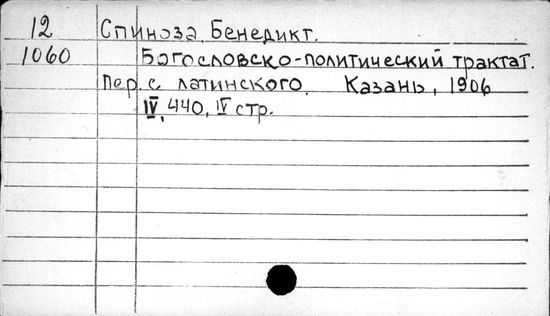 12 Спиноза, Бенедикт.
1060 Богословско-политический трактат.
Пер. с латинского. Казань, 1906
IV, 440, IV стр.